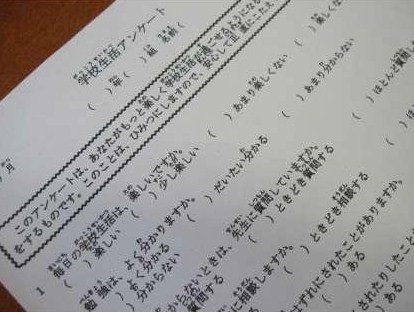 学校生活アンケート
( )年( )組 名前(
月
このアンケートは、あなたがもっと楽しく学校生活が過ごせるようになる
をするものです。このことは、ひみつにしますので、安心して正直にこたえ
1 毎日の学校生活は、楽しいですか。
( )楽しい ( )少し楽しい ( )あまり楽しくない ( )楽しくな
勉強は、よく分かりますか。
( )よく分かる ( )だいたい分かる ( )あまり分からない
( )分からない
からないときは、先生に質問していますか。
質問する ( )ときどき質問する ( )ほとんど質問
に相談しますか。
相談する ( )ときどき相談する
はずれにされたことがありますか。
( )ある
されたりしたこ
( )ある